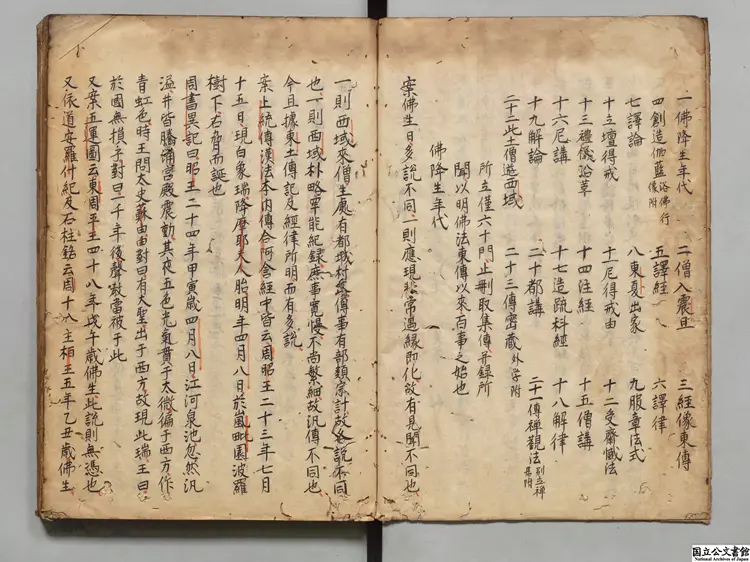 一佛降生年代 二僧入震旦 三經像東傳
四創造伽藍 浴佛行像附 五譯經 六譯律
七譯論 八東夏出家 九服章法式
十立壇得戒 十一尼得戒由 十二受齋懺法
十三禮儀沿革 十四注經 十五僧講
十六尼講 十七造疏科經 十八解律
十九解論 二十都講 二十一傳禪觀法 別立禪居附
二十二此土僧遊西域 二十三傳密藏 外學附
所立僅六十門止刪取集傳并錄所
聞以明佛法東傳以來百事之始也
佛降生年代
案佛生日多說不同一則應現非常遇緣即化故有見聞不同也
一則西域來僧生處有都城村落傳事有部類宗計故各說不同
也一則西域朴略罕能紀錄庶事寬慢不尚繁細故汎傳不同也
今且據東土傳記及經律所明而有多說
案上統傳漢法本內傳合阿含經中皆云周昭王二十三年七月
十五日現白象瑞降摩耶夫人胎明年四月八日於嵐毗園波羅
樹下右脅而誕也
周書異記曰昭王二十四年甲寅歲四月八日江河泉池忽然汎
溢井皆騰涌宮殿震動其夜五色光氣貫于太微徧于西方作
青虹色時王問太史蘇由由對曰有大聖出于西方故現此瑞王曰
於國無損乎對曰一千年後聲教當被于此
又案五運圖云東周平王四十八年戊午歲佛生此說則無憑也
又依道安羅什紀及石柱銘云周十八主桓王五年乙丑歲佛生
国立公文書館
National Archives of Japan